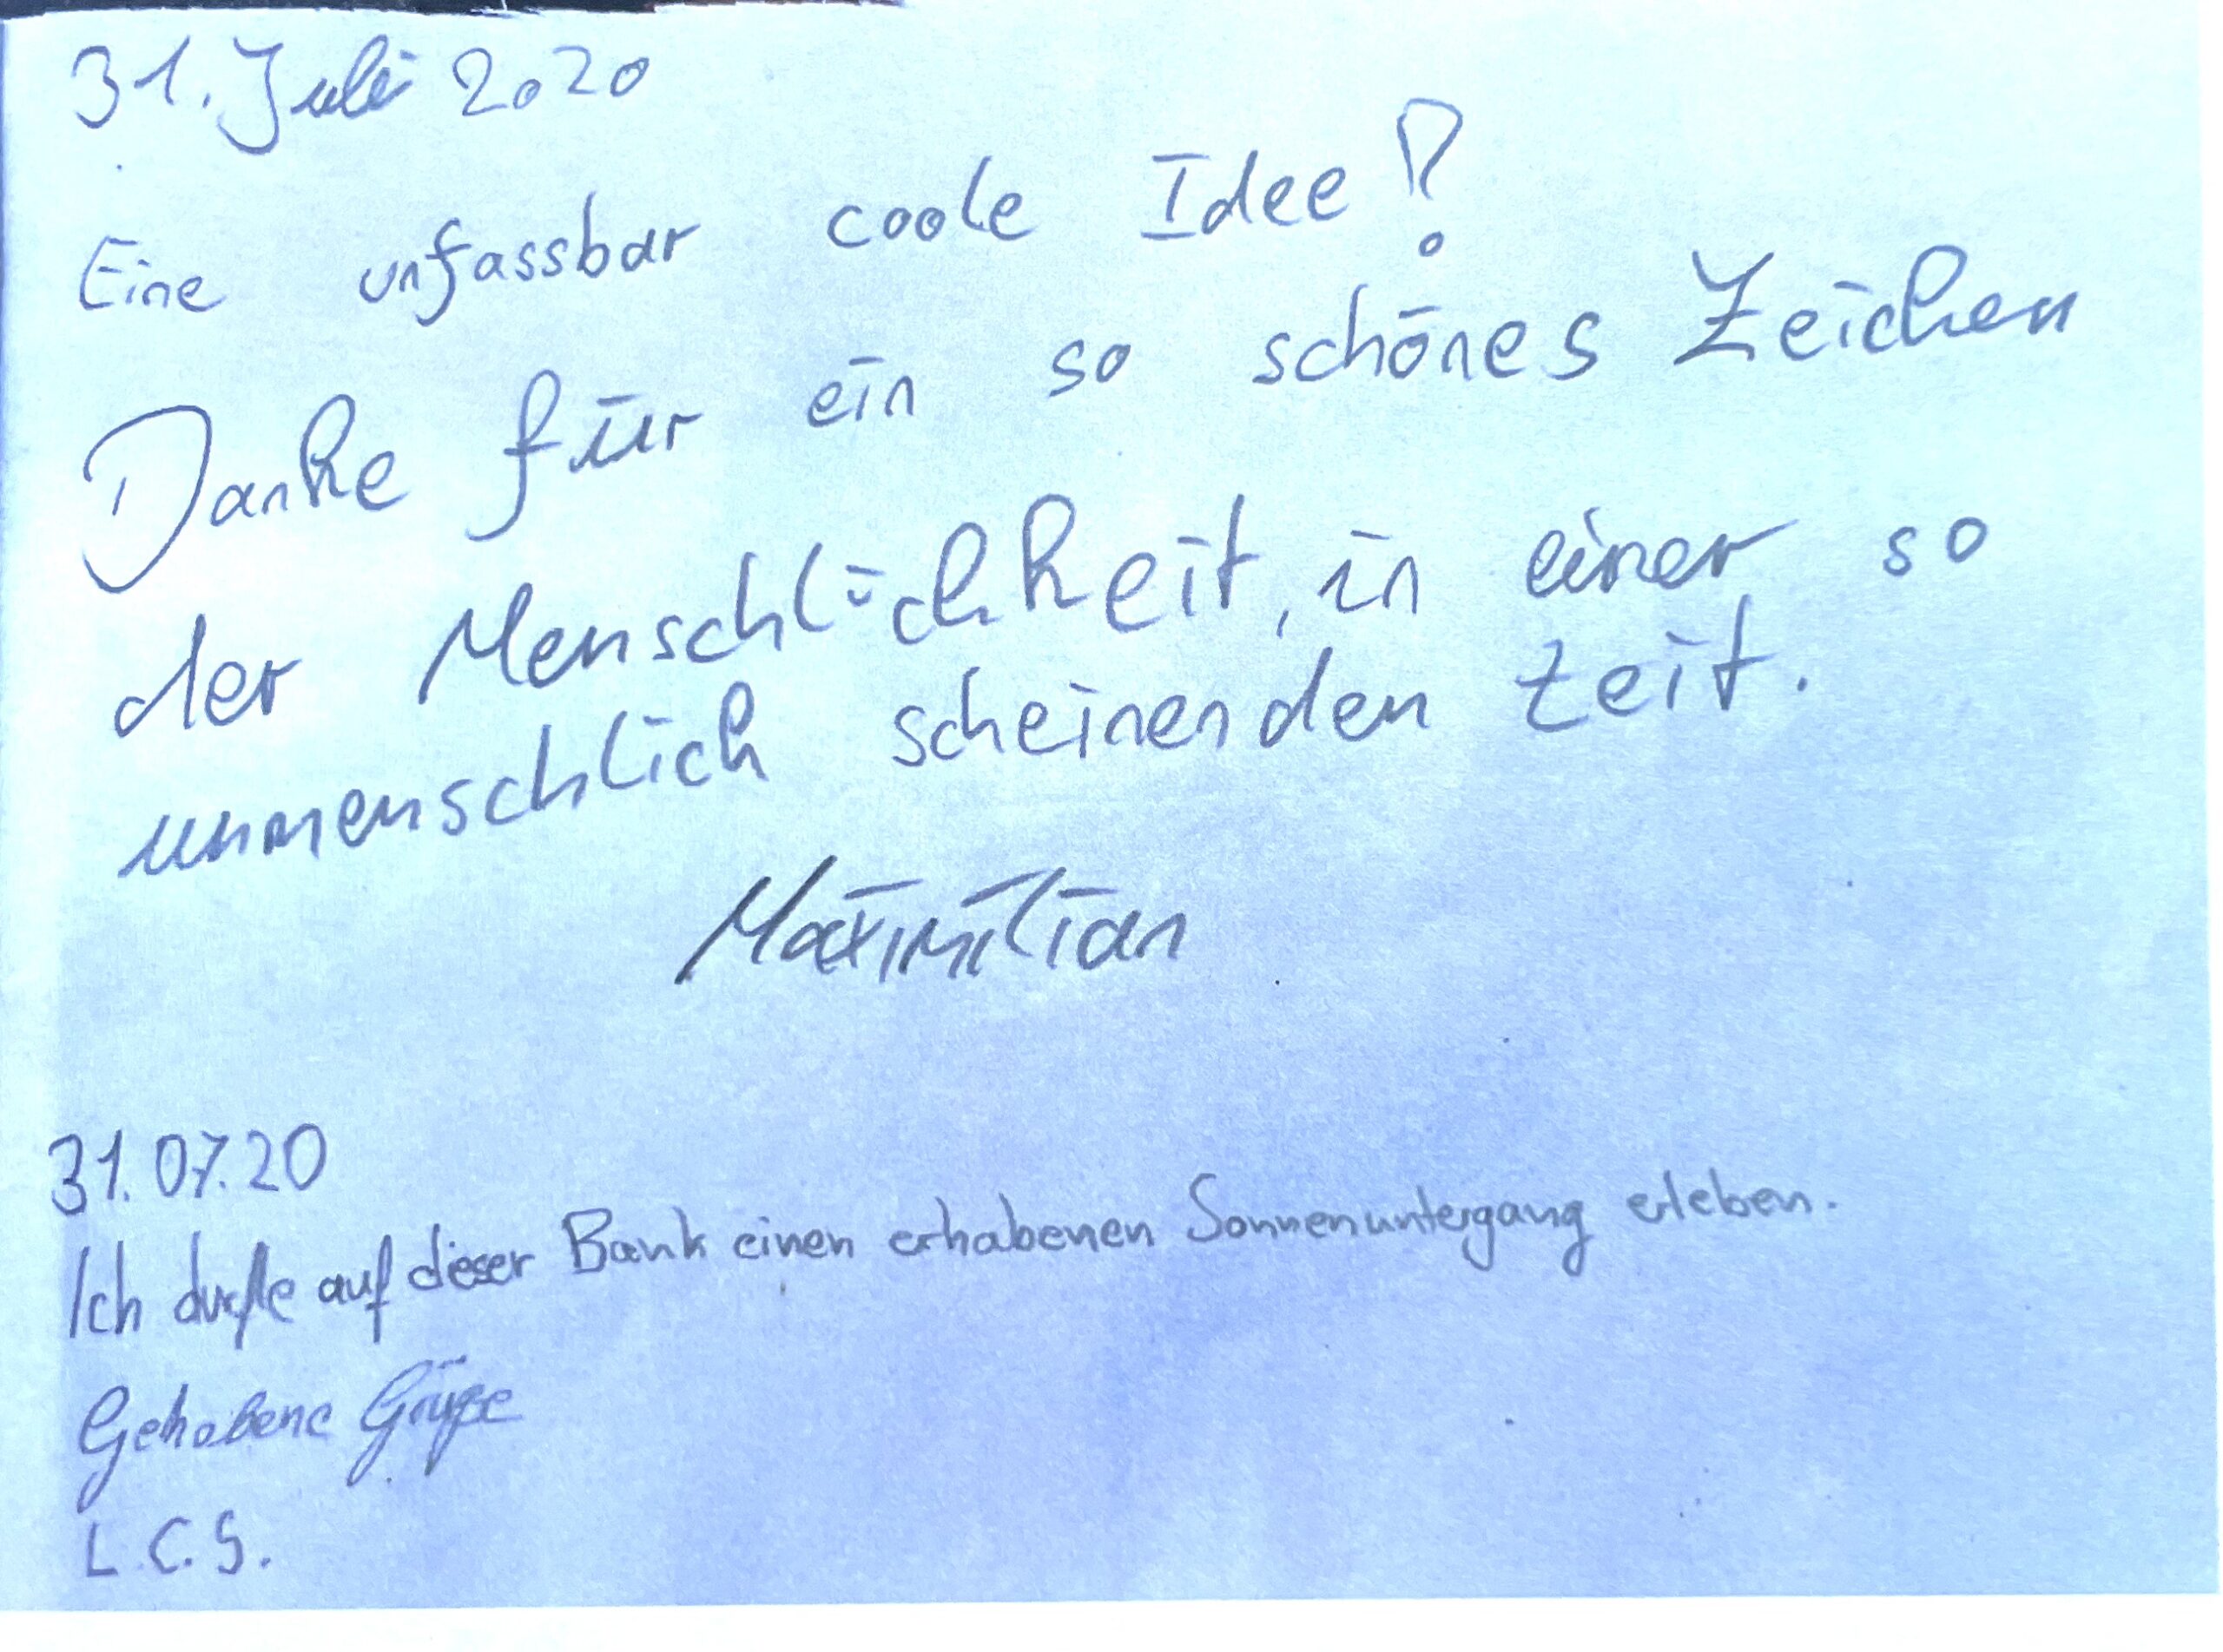 31. Juli 2020
Eine unfassbar coole Idee!
Danke für ein so schönes Zeichen
der Menschlichkeit, in einer so
unmenschlich scheinenden Zeit.
Maximilian
31.07.20
Ich durfte auf dieser Bank einen erhabenen Sonnenuntergang erleben.
Gehobene Grüße
L.C.S.